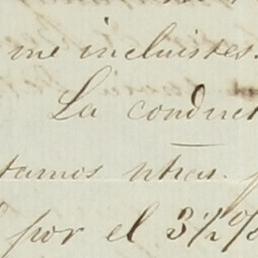 me incluistes.
La conduct
tamos ntras.
por el 3½%